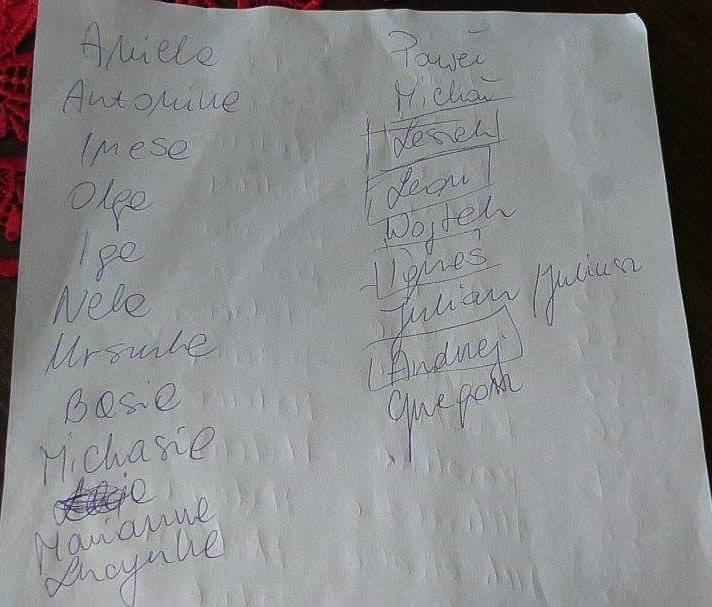 Aniela
Antonina
Inesa
Olga
Iga
Nela
Urszula
Basia
Michasia
Marianna
Lucynka
Paweł
Michał
Leszek
Leon
Wojtek
Ignaś
Julian / Juliusz
Andrzej
Grzegorz